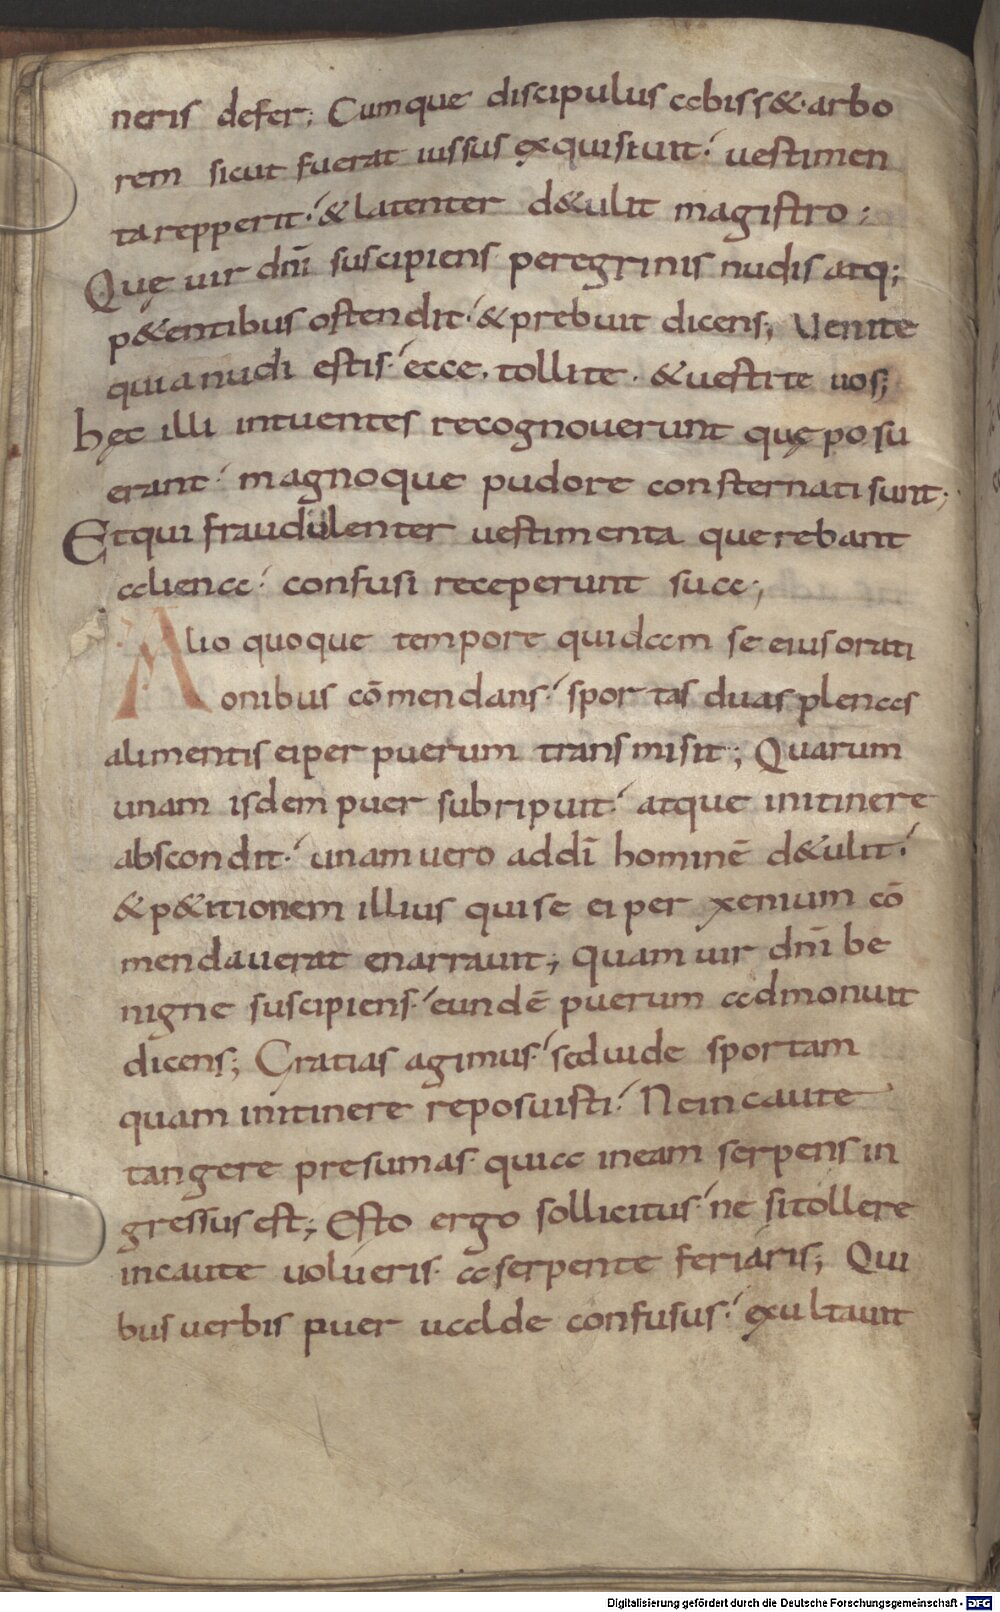 neris defer; Cumque discipulus abiss&· arbo
rem sicut fuerat iussus exquisiuit· uestimen
ta repperit· & latenter d&ulit magistro;
Quę uir dn̄i suscipiens peregrinis nudis atq;
p&entibus ostendit· & prebuit dicens; Uenite
quia nudi estis· ecce. tollite. & uestite uos;
hęc illi intuentes recognouerunt quę posu
erant· magnoque pudore consternati sunt;
Et qui fraudulenter uestimenta querebant
aliena· confusi receperunt sua;
Alio quoque tempore quidam se eius orati
onibus cōmendans· sportas duas plenas
alimentis ei per puerum transmisit; Quarum
unam isdem puer subripuit· atque in itinere
abscondit· unam uero ad dī hominē d&ulit·
& p&itionem illius qui se ei per xenium cō
mendauerat enarrauit; Quam uir dn̄i be
nigne suscipiens· eundē puerum admonuit
dicens; Gratias agimus· sed uide sportam
quam in itinere reposuisti· Ne incaute
tangere presumas· quia in eam serpens in
gressus est; Esto ergo sollicitus· ne si tollere
incaute uolueris· a serpente feriaris; Qui
bus uerbis puer ualde confusus· exultauit
Digitalisierung gefördert durch die Deutsche Forschungsgemeinschaft - DFG